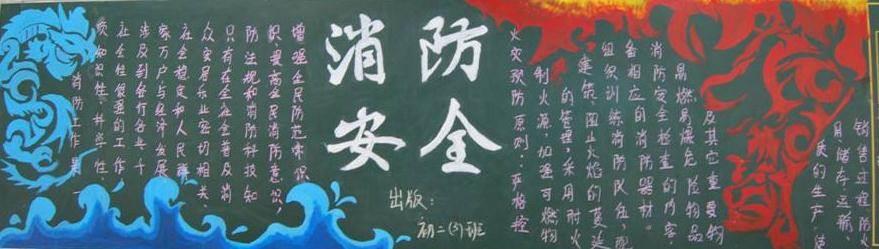 消防
安全
消防工作是一
项知识性、科学性、
社会性很强的工作
涉及到各行各业、千
家万户与经济发展
社会稳定和人民群
众安居乐业密切相关。
只有在全社会普及消
防法规和消防科技知
识,提高全民消防意识,
增强全民防范常识
出版:
初二(3)班
火灾预防原则:严格控
制火源,加强可燃物
的管理,采用耐火
建筑,阻止火焰的蔓延
组织训练消防队伍,配
备相应的消防器材。
消防安全检查的内容:
易燃易爆危险物品
及其它重要物
质的生产、使
用储存、运输
销售过程防火